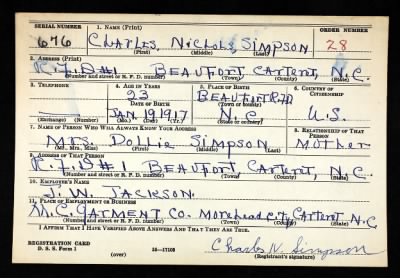 SERIAL NUMBER 1. NAME (Print) ORDER NUMBER
676 CHARLES, NICHOLS, SIMPSON 28
(First) (Middle) (Last)
2. ADDRESS (Print)
R.F.D#1 BEAUFORT CARTERT, N.C.
(Number and street or R. F. D. number) (Town) (County) (State)
3. TELEPHONE 4. AGE IN YEARS 5. PLACE OF BIRTH 6. COUNTRY OF CITIZENSHIP
23 BEAUFORT RFD
DATE OF BIRTH (Town or county)
JAN 19 1917 N.C. U.S.
(Exchange) (Number) (Mo.) (Day) (Yr.) (State or country)
7. NAME OF PERSON WHO WILL ALWAYS KNOW YOUR ADDRESS 8. RELATIONSHIP OF THAT PERSON
MRS. DOLLIE SIMPSON MOTHER
(Mr., Mrs., Miss) (First) (Middle) (Last)
9. ADDRESS OF THAT PERSON
R.F.D#1 BEAUFORT CARTERT, N.C.
(Number and street or R. F. D. number) (Town) (County) (State)
10. EMPLOYER'S NAME
J. W. JACKSON
11. PLACE OF EMPLOYMENT OR BUSINESS
N.C. GARMENT CO. MOREHEAD CITY CARTERT N.C
(Number and street or R. F. D. number) (Town) (County) (State)
I AFFIRM THAT I HAVE VERIFIED ABOVE ANSWERS AND THAT THEY ARE TRUE.
REGISTRATION CARD
D. S. S. Form 1 16—17105 Charles N. Simpson
(over) (Registrant's signature)